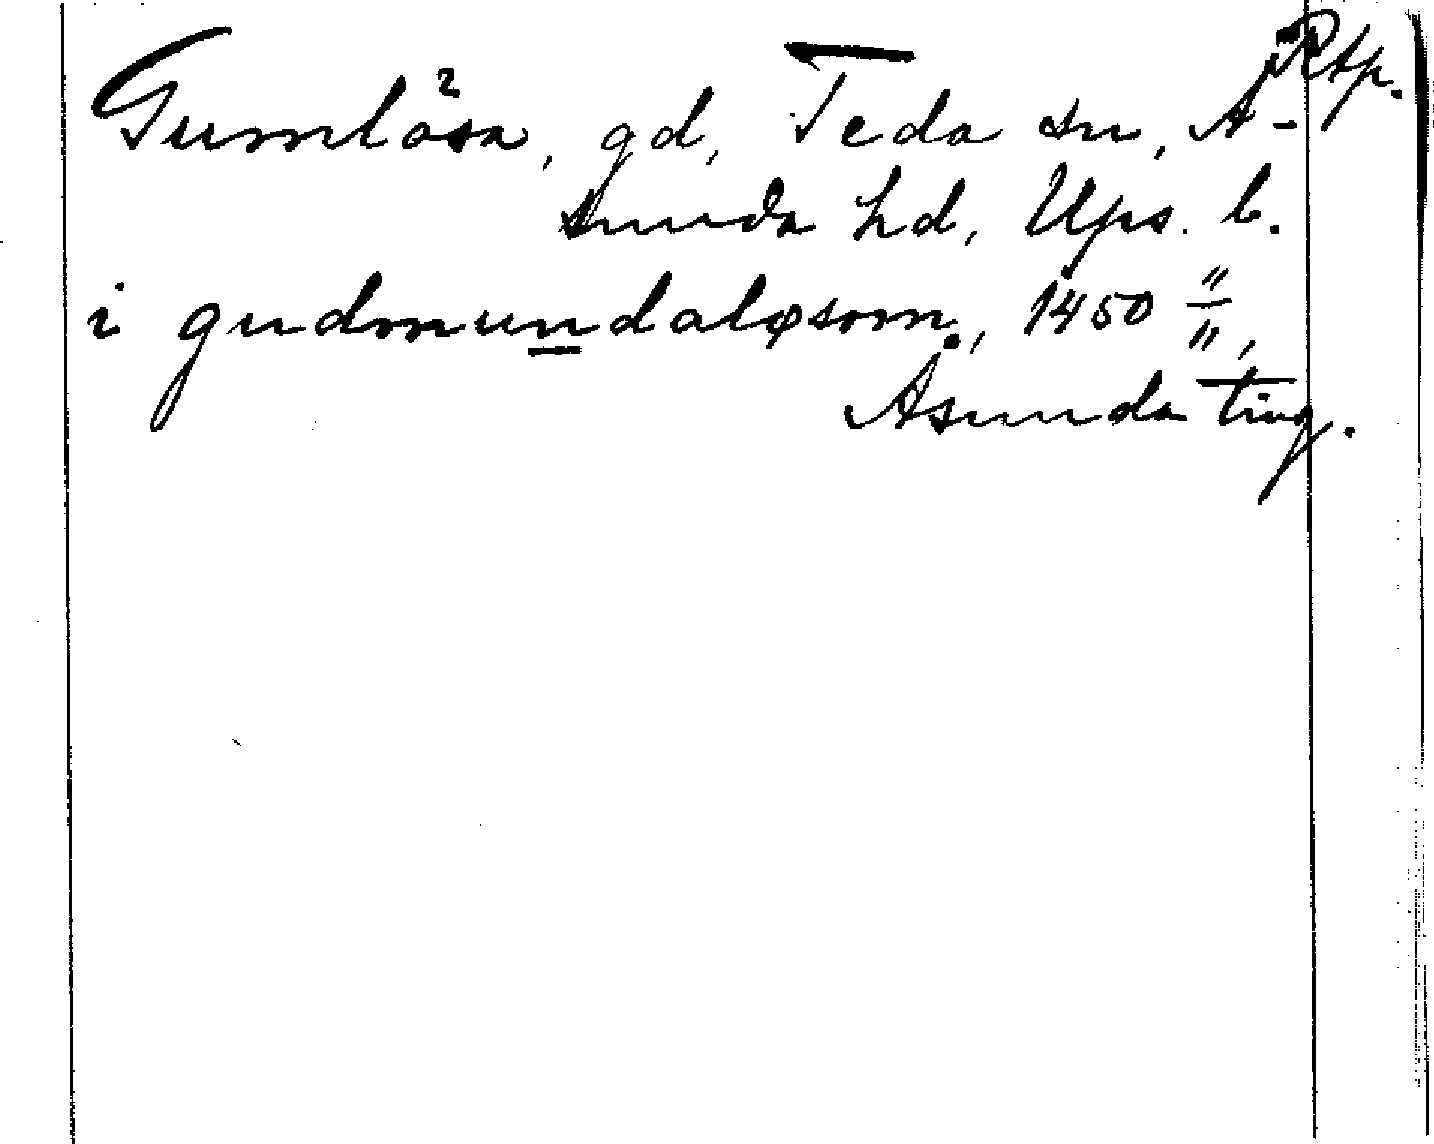 Rtp.
Gumlösa, gd, Teda sn, Å-
sunda hd, Ups. l.
i gudmundaløsom, 1450 11/11,
Åsunda ting.